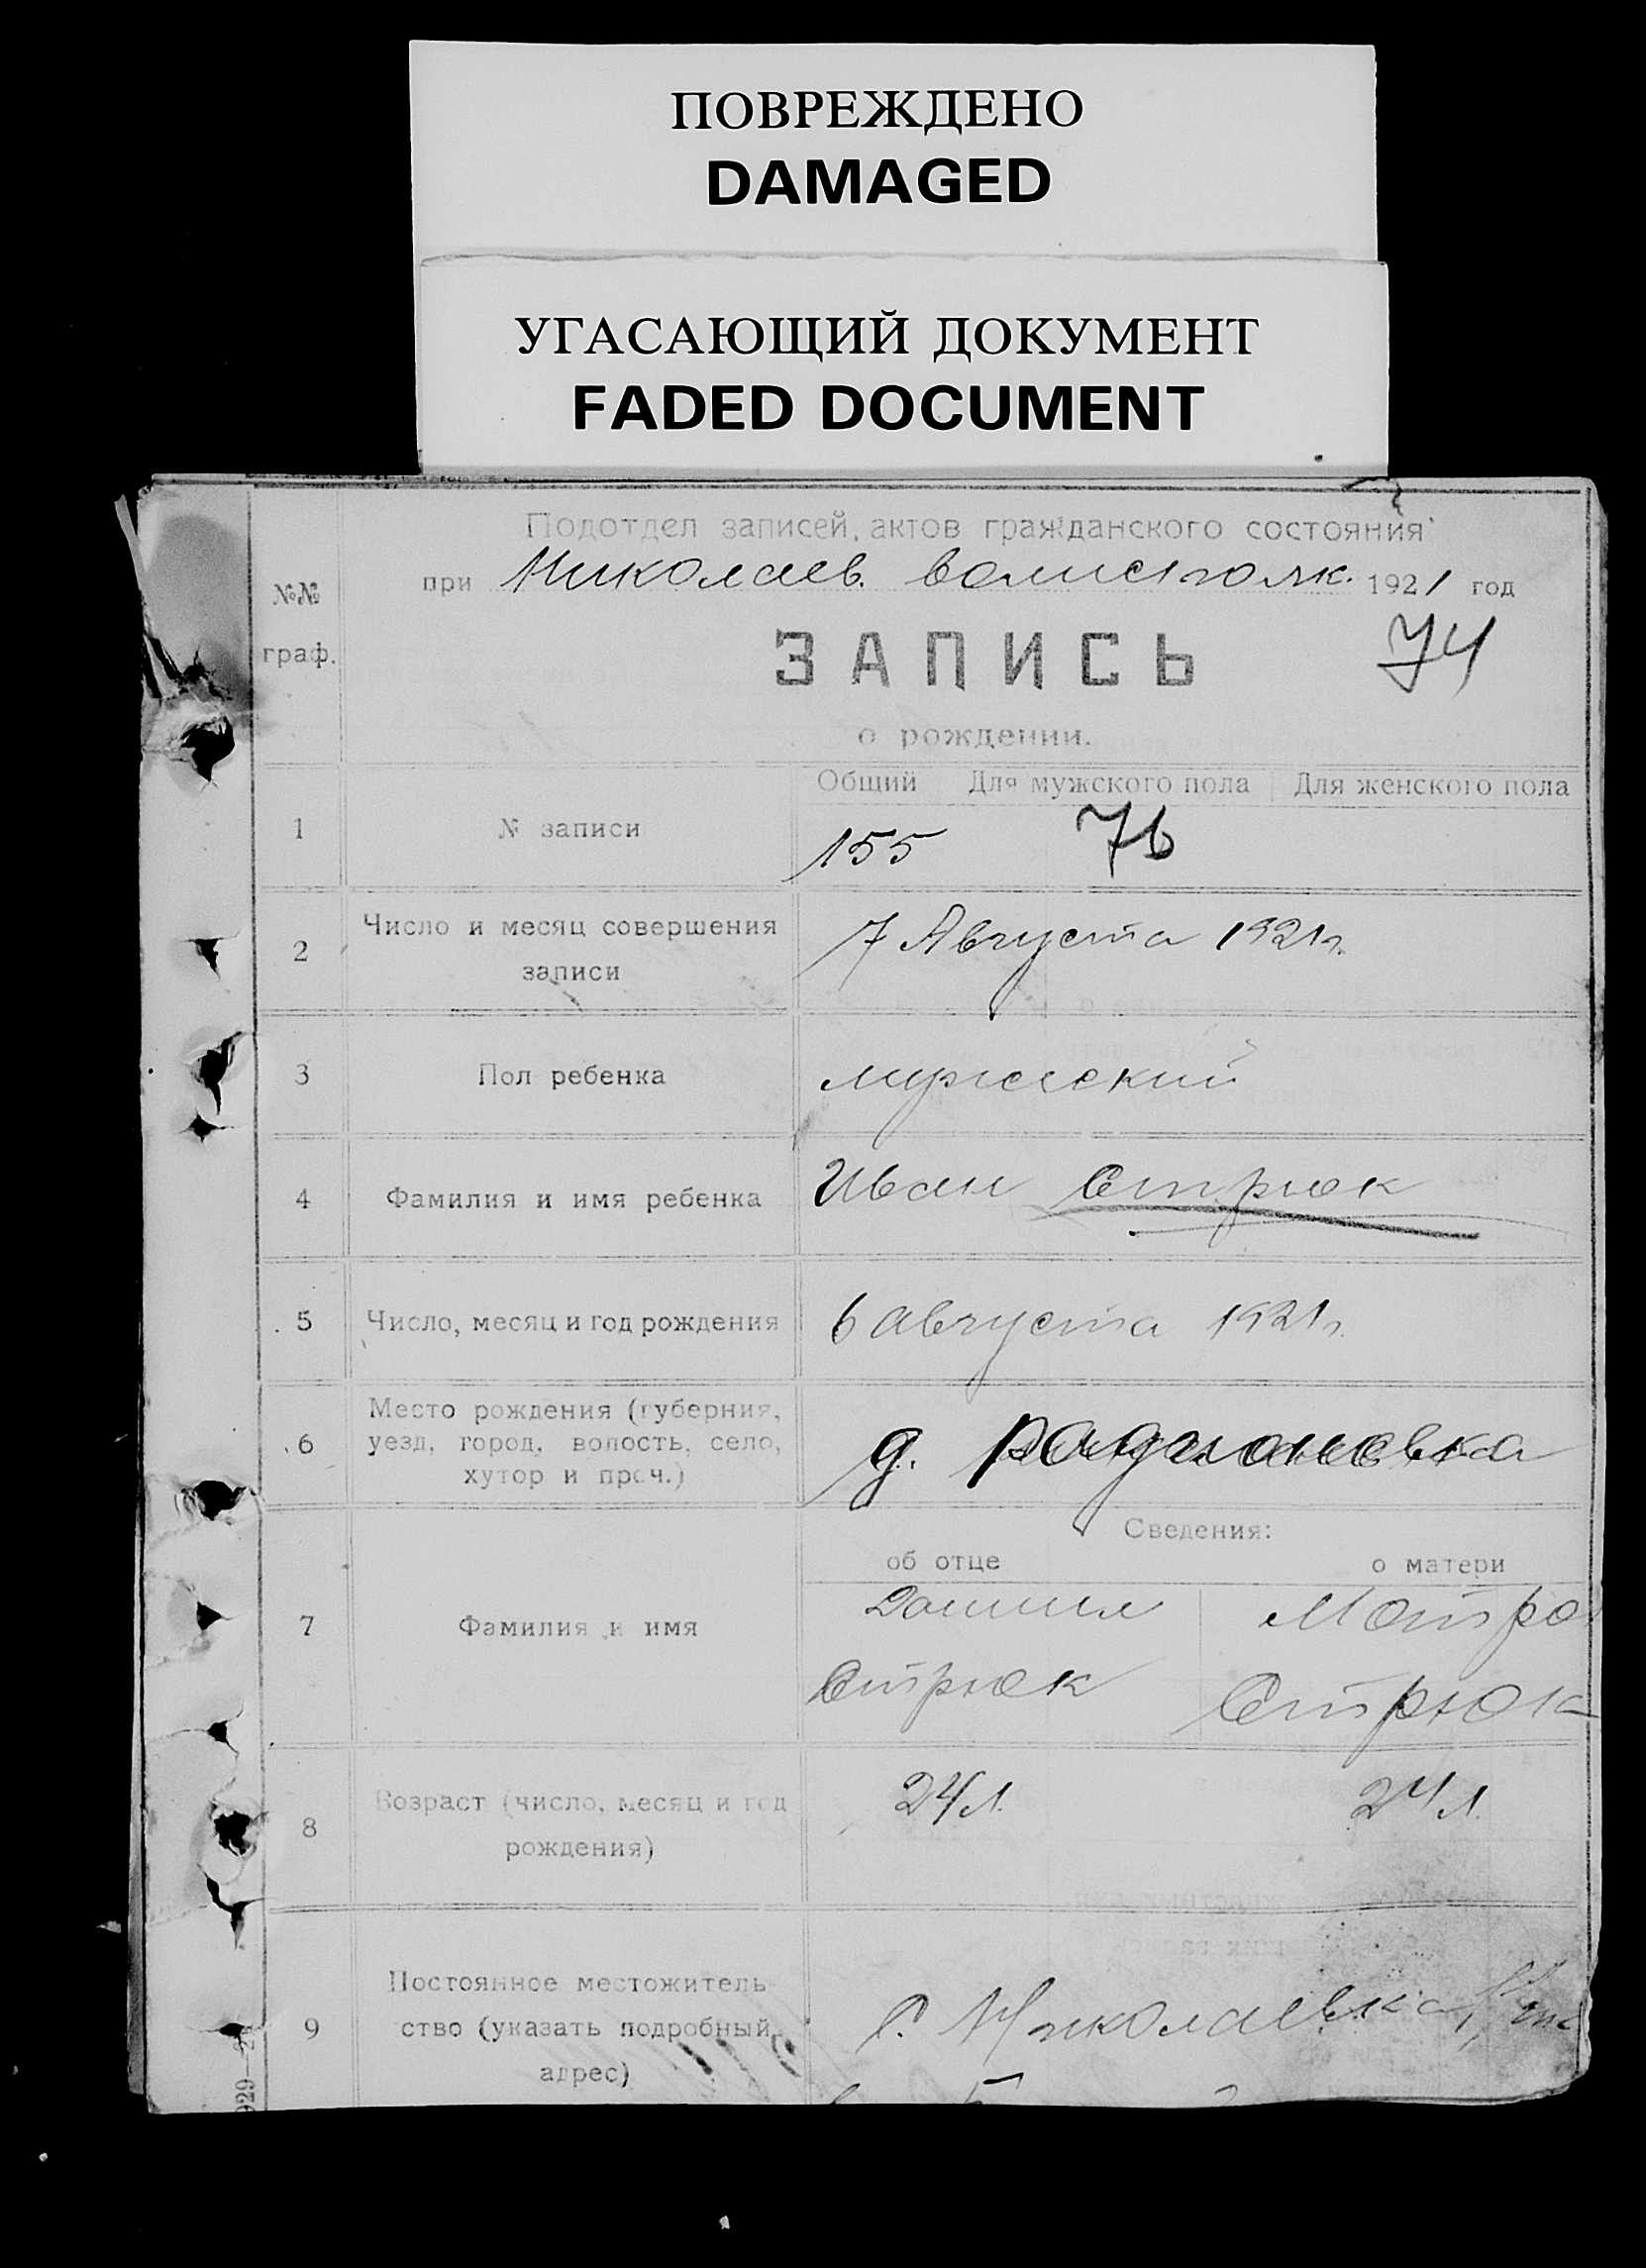 ПОВРЕЖДЕНО
DAMAGED
УГАСАЮЩИЙ ДОКУМЕНТ
FADED DOCUMENT
Подотдел записей актов гражданского состояния
при Николаев. волисполк. 1921 год
№№ граф.
ЗАПИСЬ
74
о рождении.
Общий Для мужского пола Для женского пола
1 № записи 155 76
2 Число и месяц совершения записи 7 Августа 1921 г.
3 Пол ребенка мужеский
4 Фамилия и имя ребенка Иван Стрюк
5 Число, месяц и год рождения 6 августа 1921 г.
6 Место рождения (губерния,
уезд, город, волость, село,
хутор и проч.) д.
Сведения:
об отце о матери
7 Фамилия и имя Даниил Матро
Стрюк Стрюк
8 Возраст (число, месяц и год
рождения) 24 л. 24 л.
9 Постоянное местожитель-
ство (указать подробный
адрес) С. Николаевка
929